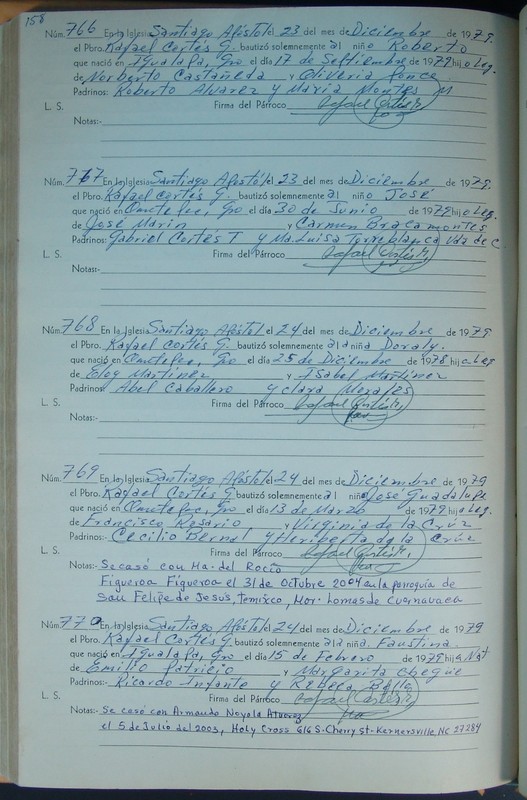 158
Núm. 766 En la Iglesia Santiago Apóstol el 23 del mes de Diciembre de 1979.
el Pbro. Rafael Cortés G. bautizó solemnemente al niño Roberto
que nació en Igualapa, Gro el día 17 de Septiembre de 1979 hijo Leg.
de Norberto Castañeda y Oliveria Ponce
Padrinos: Roberto Alvarez y Maria Montes M
L. S. Firma del Párroco Rafael Cortés G.
Notas:-
Núm. 767 En la Iglesia Santiago Apóstol el 23 del mes de Diciembre de 1979.
el Pbro. Rafael Cortés G. bautizó solemnemente al niño José
que nació en Ometepec, Gro el día 30 de Junio de 1979 hijo Leg.
de José Marin y Carmen Bracamontes
Padrinos: Gabriel Cortés T y Ma. Luisa Torreblanca Vda de C
L. S. Firma del Párroco Rafael Cortés G.
Notas:-
Núm. 768 En la Iglesia Santiago Apóstol el 24 del mes de Diciembre de 1979
el Pbro. Rafael Cortés G. bautizó solemnemente a la niña Doraly.
que nació en Ometepec, Gro el día 25 de Diciembre de 1978 hija Leg
de Eloy Martinez y Isabel Martinez
Padrinos: Abel Caballero y Clara Morales
L. S. Firma del Párroco Rafael Cortés G.
Notas:-
Núm. 769 En la Iglesia Santiago Apóstol el 24 del mes de Diciembre de 1979
el Pbro. Rafael Cortés G bautizó solemnemente al niño José Guadalupe
que nació en Ometepec, Gro el día 13 de Marzo de 1979 hijo Leg.
de Francisco Rosario y Virginia de la Crúz
Padrinos:- Cecilio Bernal y Heriberta de la Crúz
L. S. Firma del Párroco Rafael Cortés G.
Notas:- Se casó con Ma. del Rocio
Figueroa Figueroa el 31 de Octubre 2004 en la parroquia de
San Felipe de Jesus, Temixco, Mor. Lomas de Cuernavaca
Núm. 770 En la Iglesia Santiago Apóstol el 24 del mes de Diciembre de 1979
el Pbro. Rafael Cortés G. bautizó solemnemente a la niña. Faustina.
que nació en Igualapa, Gro el día 15 de Febrero de 1979 hija Nat
de Emilio Patricio y Margarita Chegue
Padrinos:- Ricardo Infante y Rebeca Bello
L. S. Firma del Párroco Rafael Cortés G.
Notas:- Se casó con Armando Noyola Alvarez
el 5 de Julio del 2003, Holy Cross 616 S. Cherry St. Kernersville, NC 27284